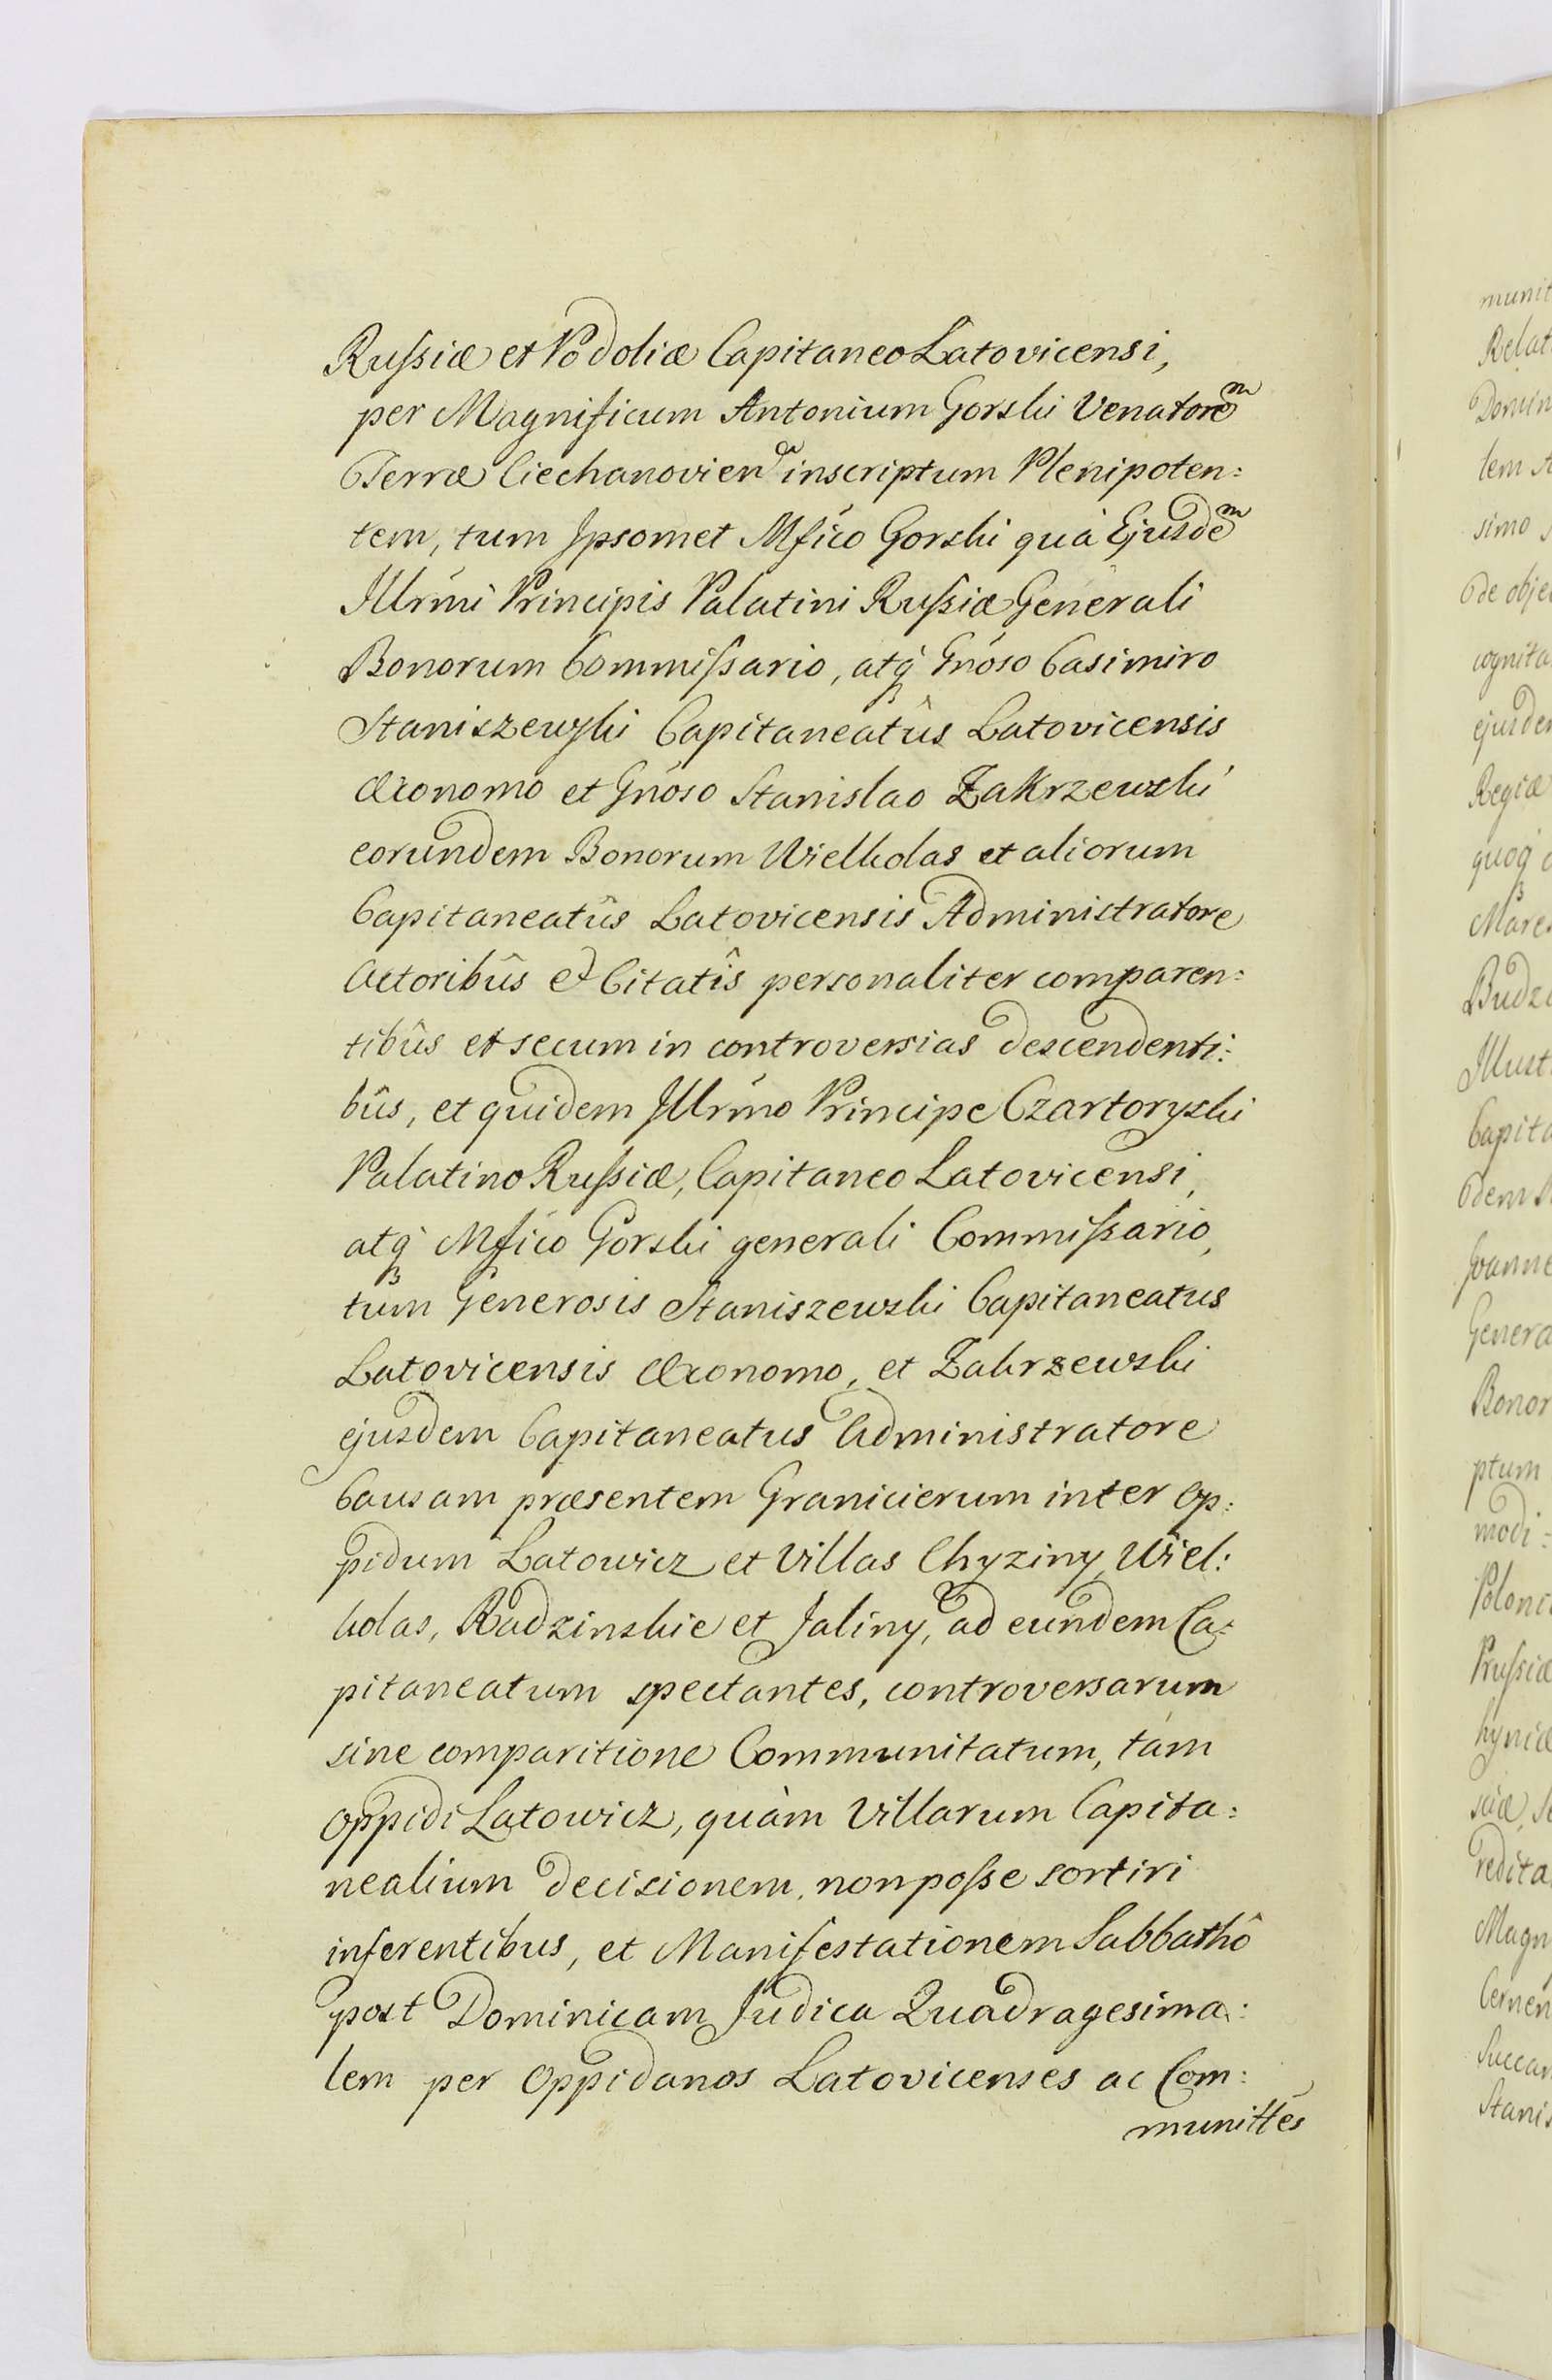 Russiæ et Podoliæ Capitaneo Latovicensi,
per Magnificum Antonium Gorski Venatorem
Terræ Ciechanovien inscriptum Plenipoten:
tem, tum Ipsomet Mfico Gorski quà Ejusdem
Illrmi Principis Palatini Russiæ Generali
Bonorum Commissario, atq Gnoso Casimiro
Staniszewski Capitaneatûs Latovicensis
Œconomo et Gnoso Stanislao Zakrzewski
eorundem Bonorum Wielkolas et aliorum
Capitaneatûs Latovicensis Administratore
Actoribûs et Citatîs personaliter comparen:
tibûs et secum in controversias descendenti:
bûs, et quidem Illrmo Principe Czartoryski
Palatino Russiæ, Capitaneo Latovicensi,
atq Mfico Gorski generali Commissario,
tum Generosis Staniszewski Capitaneatus
Latovicensis Œconomo, et Zakrzewski
ejusdem Capitaneatus Administratore
Causam præsentem Granicierum inter Op:
pidum Latowicz et Villas Chyziny, Wiel:
kolas, Radzinskie et Jaliny, ad eundem Ca:
pitaneatum spectantes, controversarum
sine comparitione Communitatum, tàm
Oppidi Latowicz, quàm Villarum Capita:
nealium decisionem, non posse sortiri
inferentibus, et Manifestationem Sabbathô
post Dominicam Judica Quadragesima:
lem per Oppidanos Latovicenses ac Com:
munittes
munit
Relat
Domin
lem
simo
de obje
cognita
ejusdem
Regiæ
quoq
Mare
Budzi
Illust
Capita
dem
Joanne
Genera
Bonor
ptum
modi:
Poloni
Prussiæ
hyniæ
siæ, S
redita
Magn
Cernen
Succam
Stanis